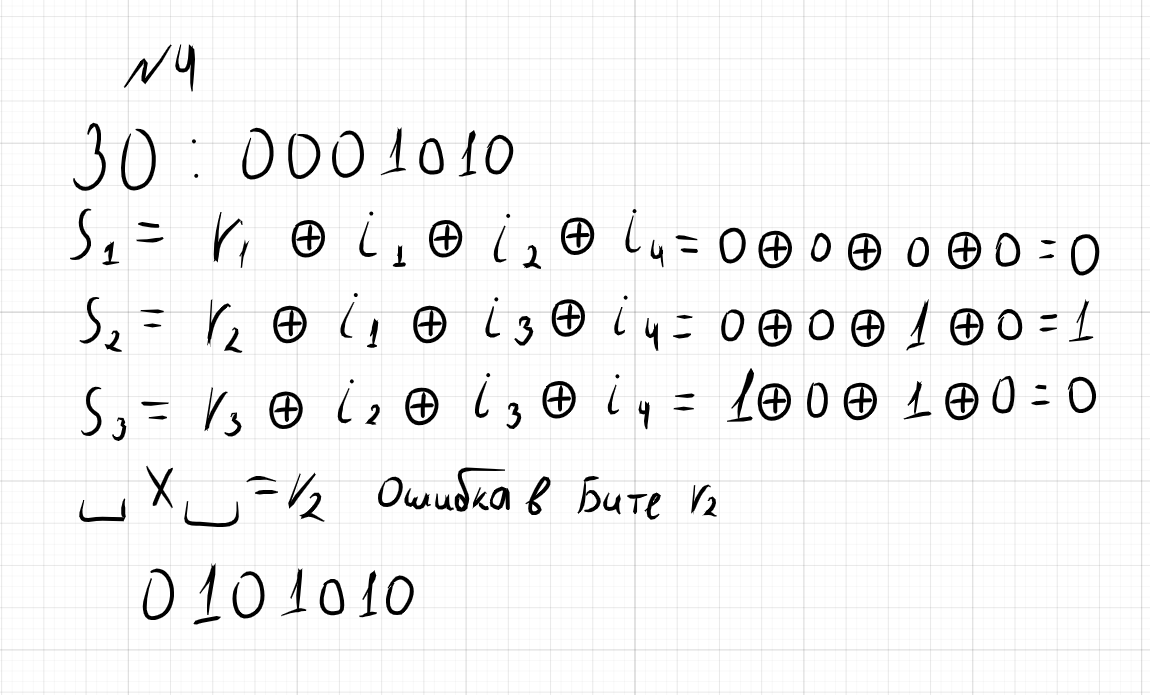 №4
30 : 0001010
S₁ = r₁ ⊕ i₁ ⊕ i₂ ⊕ i₄ = 0 ⊕ 0 ⊕ 0 ⊕ 0 = 0
S₂ = r₂ ⊕ i₁ ⊕ i₃ ⊕ i₄ = 0 ⊕ 0 ⊕ 1 ⊕ 0 = 1
S₃ = r₃ ⊕ i₂ ⊕ i₃ ⊕ i₄ = 1 ⊕ 0 ⊕ 1 ⊕ 0 = 0
␣ X ␣ = r₂ Ошибка в Бите r₂
0101010